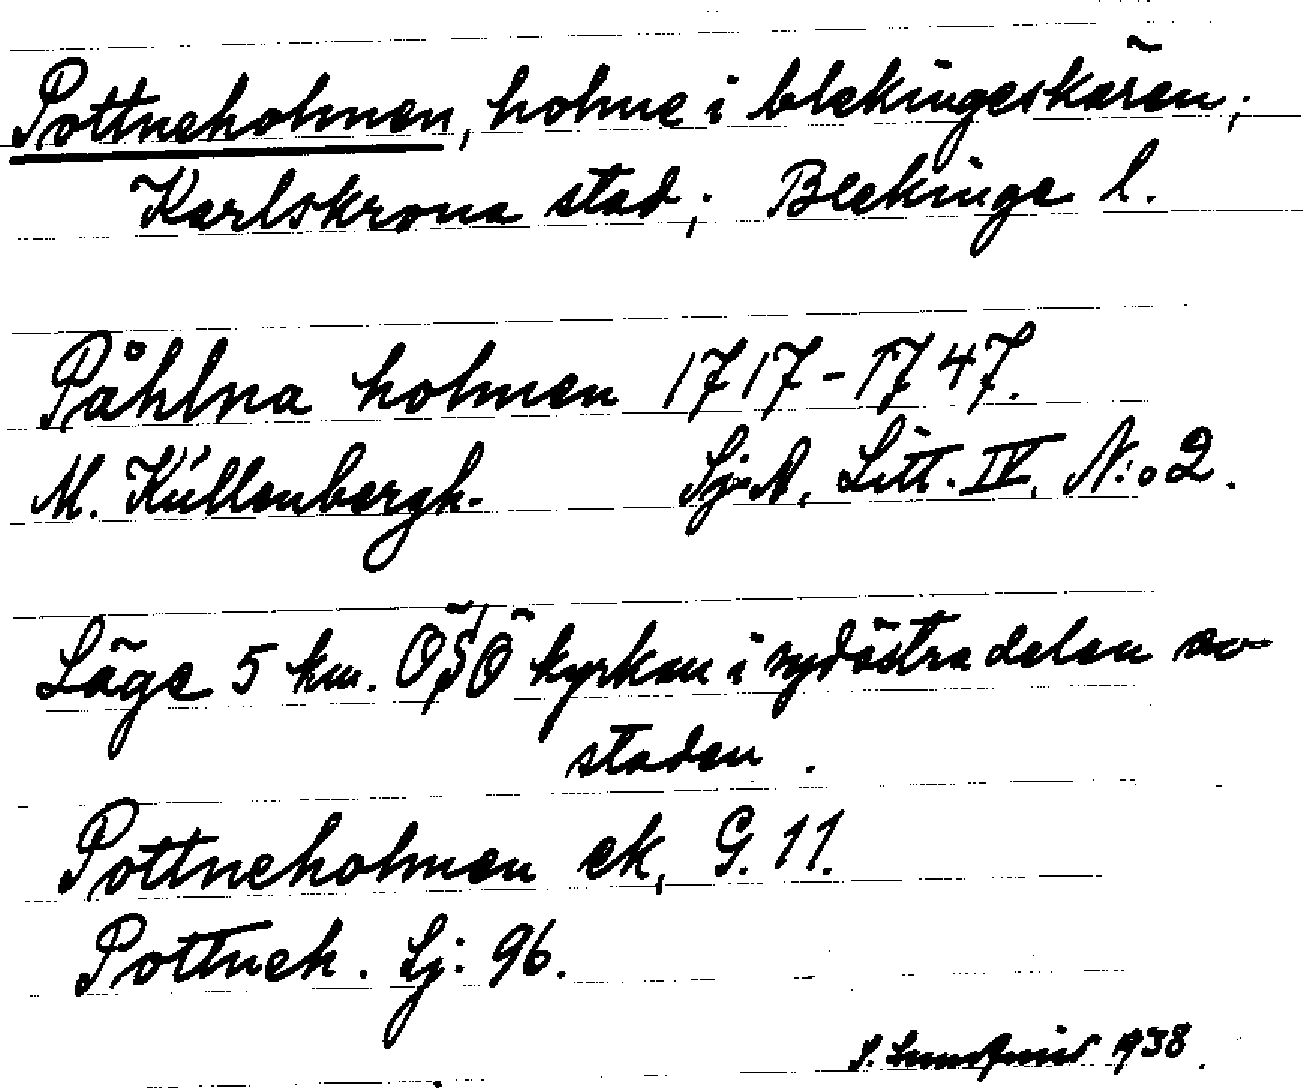 Pottneholmen, holme i blekingeskären;
Karlskrona stad; Blekinge l.
Påhlna holmen 1717-1747.
M. Küllenbergh. SjA, Litt. IV. N:o 2.
Läge 5 km. OSO kyrkan i sydöstra delen av
staden.
Pottneholmen ek, G. 11.
Pottneh. Sj: 96.
S. Lundquist 1938.